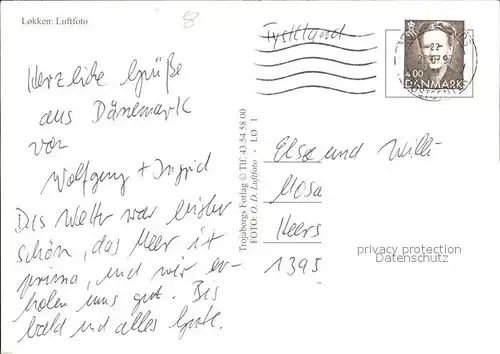 Løkken: Luftfoto
8
Tyskland
4.00
DANMARK
Herzliche Grüße
aus Dänemark
von
Wolfgang + Ingrid
Das Wetter war bisher
schön, das Meer ist
prima, und wir er-
holen uns gut. Bis
bald und alles Gute.
Trojaborgs Forlag © Tlf. 43 54 58 00
FOTO: O. D. Luftfoto • LØ 1
Elsa und Willi
Mosa
Heers
1395
privacy protection
Datenschutz